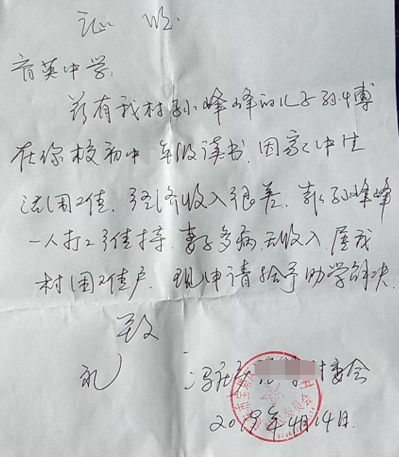 证明
育英中学:
兹有我村孙峰峰的儿子孙博
在你校初中 年级读书.因家中生
活困难.经济收入很差.靠孙峰峰
一人打工维持.妻子多病.无收入.属我
村困难户.现申请给予助学解决.
致
礼
村委会
2019年4月14日.